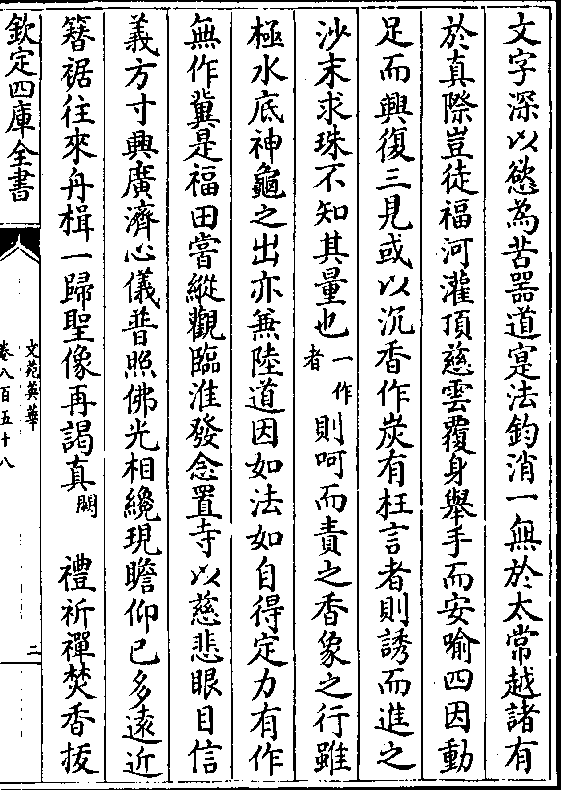 文字深以慾為苦器道寔法鈞消一無於太常越諸有
於真際豈徒福河灌頂慈雲覆身舉手而安喻四因動
足而興復三見或以沉香作炭有枉言者則誘而進之
沙末求珠不知其量也一作者則呵而責之香象之行雖
極水底神龜之出亦兼陸道因如法如自得定力有作
無作冀是福田嘗縱觀臨淮發念置寺以慈悲眼目信
義方寸興廣濟心儀普照佛光相纔現瞻仰已多遠近
簪裾往來舟楫一歸聖像再謁真闕　禮祈禪焚香扳
欽定四庫全書
文苑英華
卷八百五十八
二